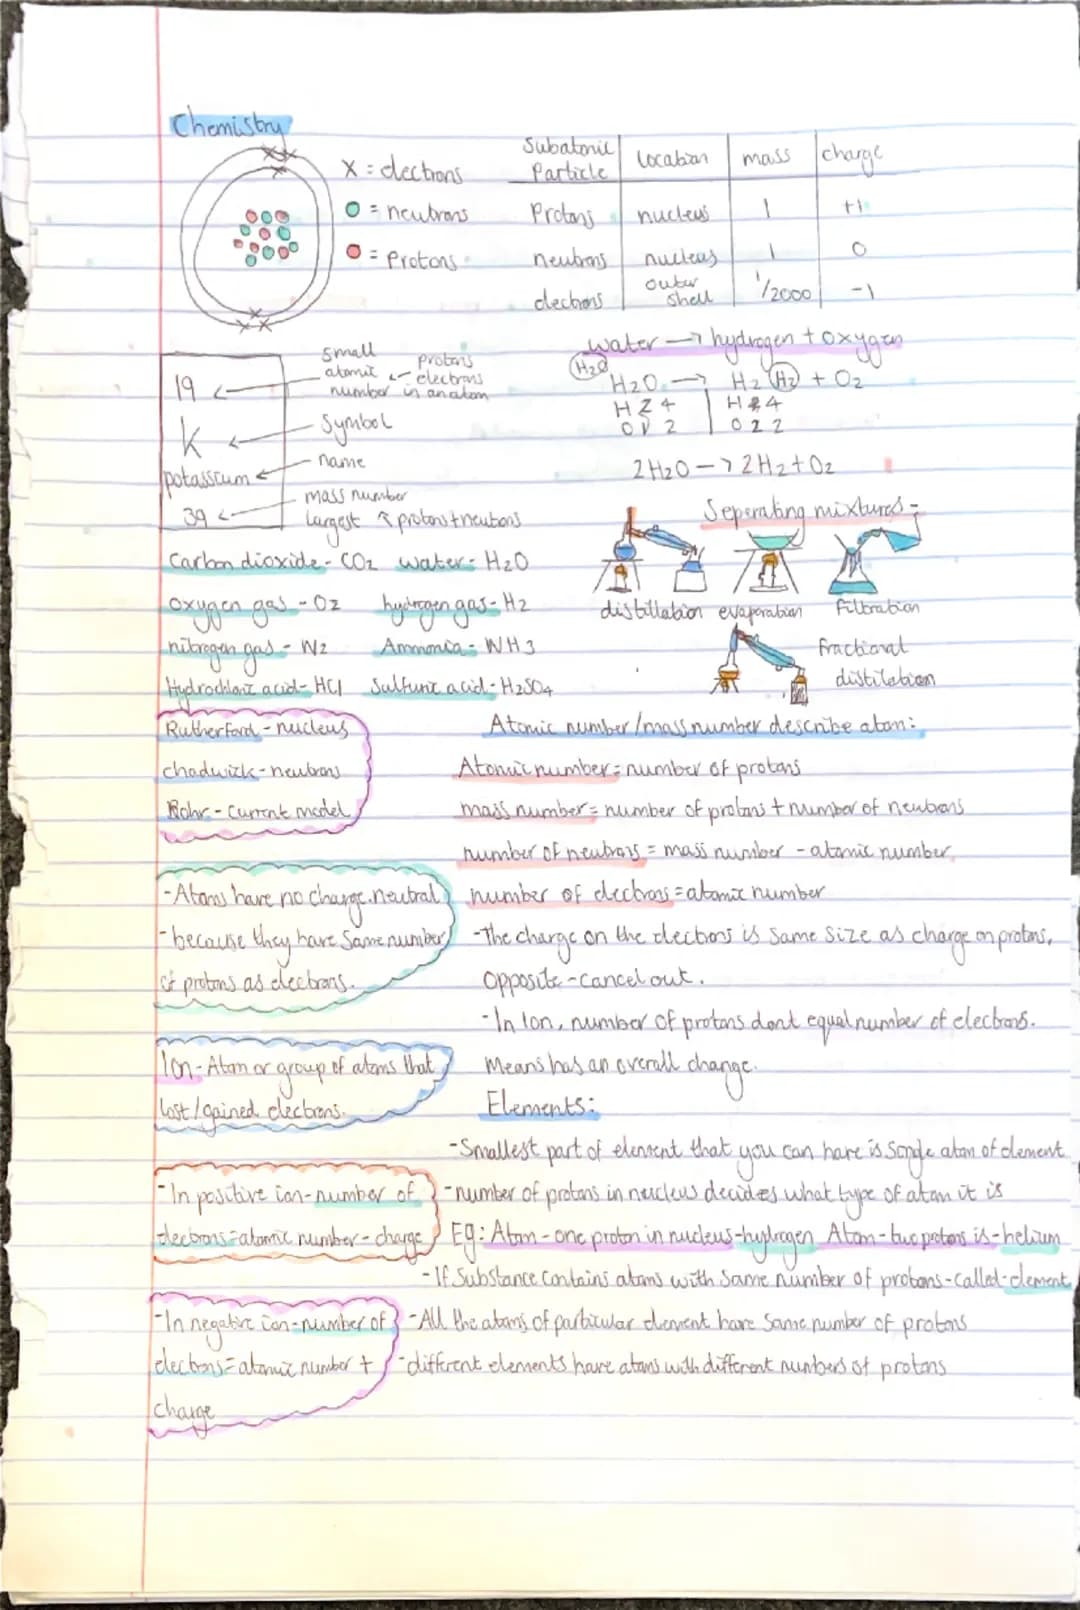 Chemistry
X = electrons
= neutrons
= Protons
Subatomic Particle | Location | mass | charge
Protons | nucleus | 1 | +1
neutrons | nucleus | 1 | 0
electrons | outer shell | 1/2000 | -1
19
K
potassium
39
small
atomic
number
protons
electrons
in an atom
Symbol
name
mass number
largest protons + neutrons
water → hydrogen + oxygen
H2O
H2O → H2 H2 + O2
H 2 4 | H 2 4
O 1 2 | O 2 2
2H2O → 2H2 + O2
Seperating mixtures -
distillation evaporation filtration
fractional
distilation
Carbon dioxide - CO2 water - H2O
oxygen gas - O2 hydrogen gas - H2
nitrogen gas - N2 Ammonia - NH3
Hydrochloric acid - HCl Sulfuric acid - H2SO4
Rutherford - nucleus
chadwick - neutrons
Bohr - Current model
Atomic number / mass number describe atom:
Atomic number = number of protons
mass number = number of protons + number of neutrons
number of neutrons = mass number - atomic number
number of electrons = atomic number
- Atoms have no charge. neutral
- because they have same number
of protons as electrons.
- The charge on the electrons is same size as charge on protons,
opposite - cancel out.
- In Ion, number of protons dont equal number of electrons.
Means has an overall change.
Ion - Atom or group of atoms that
lost / gained electrons.
Elements:
- Smallest part of element that you can have is single atom of element
- In positive ion - number of
electrons = atomic number - charge
- number of protons in nucleus decides what type of atom it is
Eg: Atom - one proton in nucleus - hydrogen Atom - two protons is - helium
- If Substance contains atoms with same number of protons - called - element
- In negative ion - number of
electrons = atomic number +
charge
- All the atoms of particular element have same number of protons
- different elements have atoms with different numbers of protons